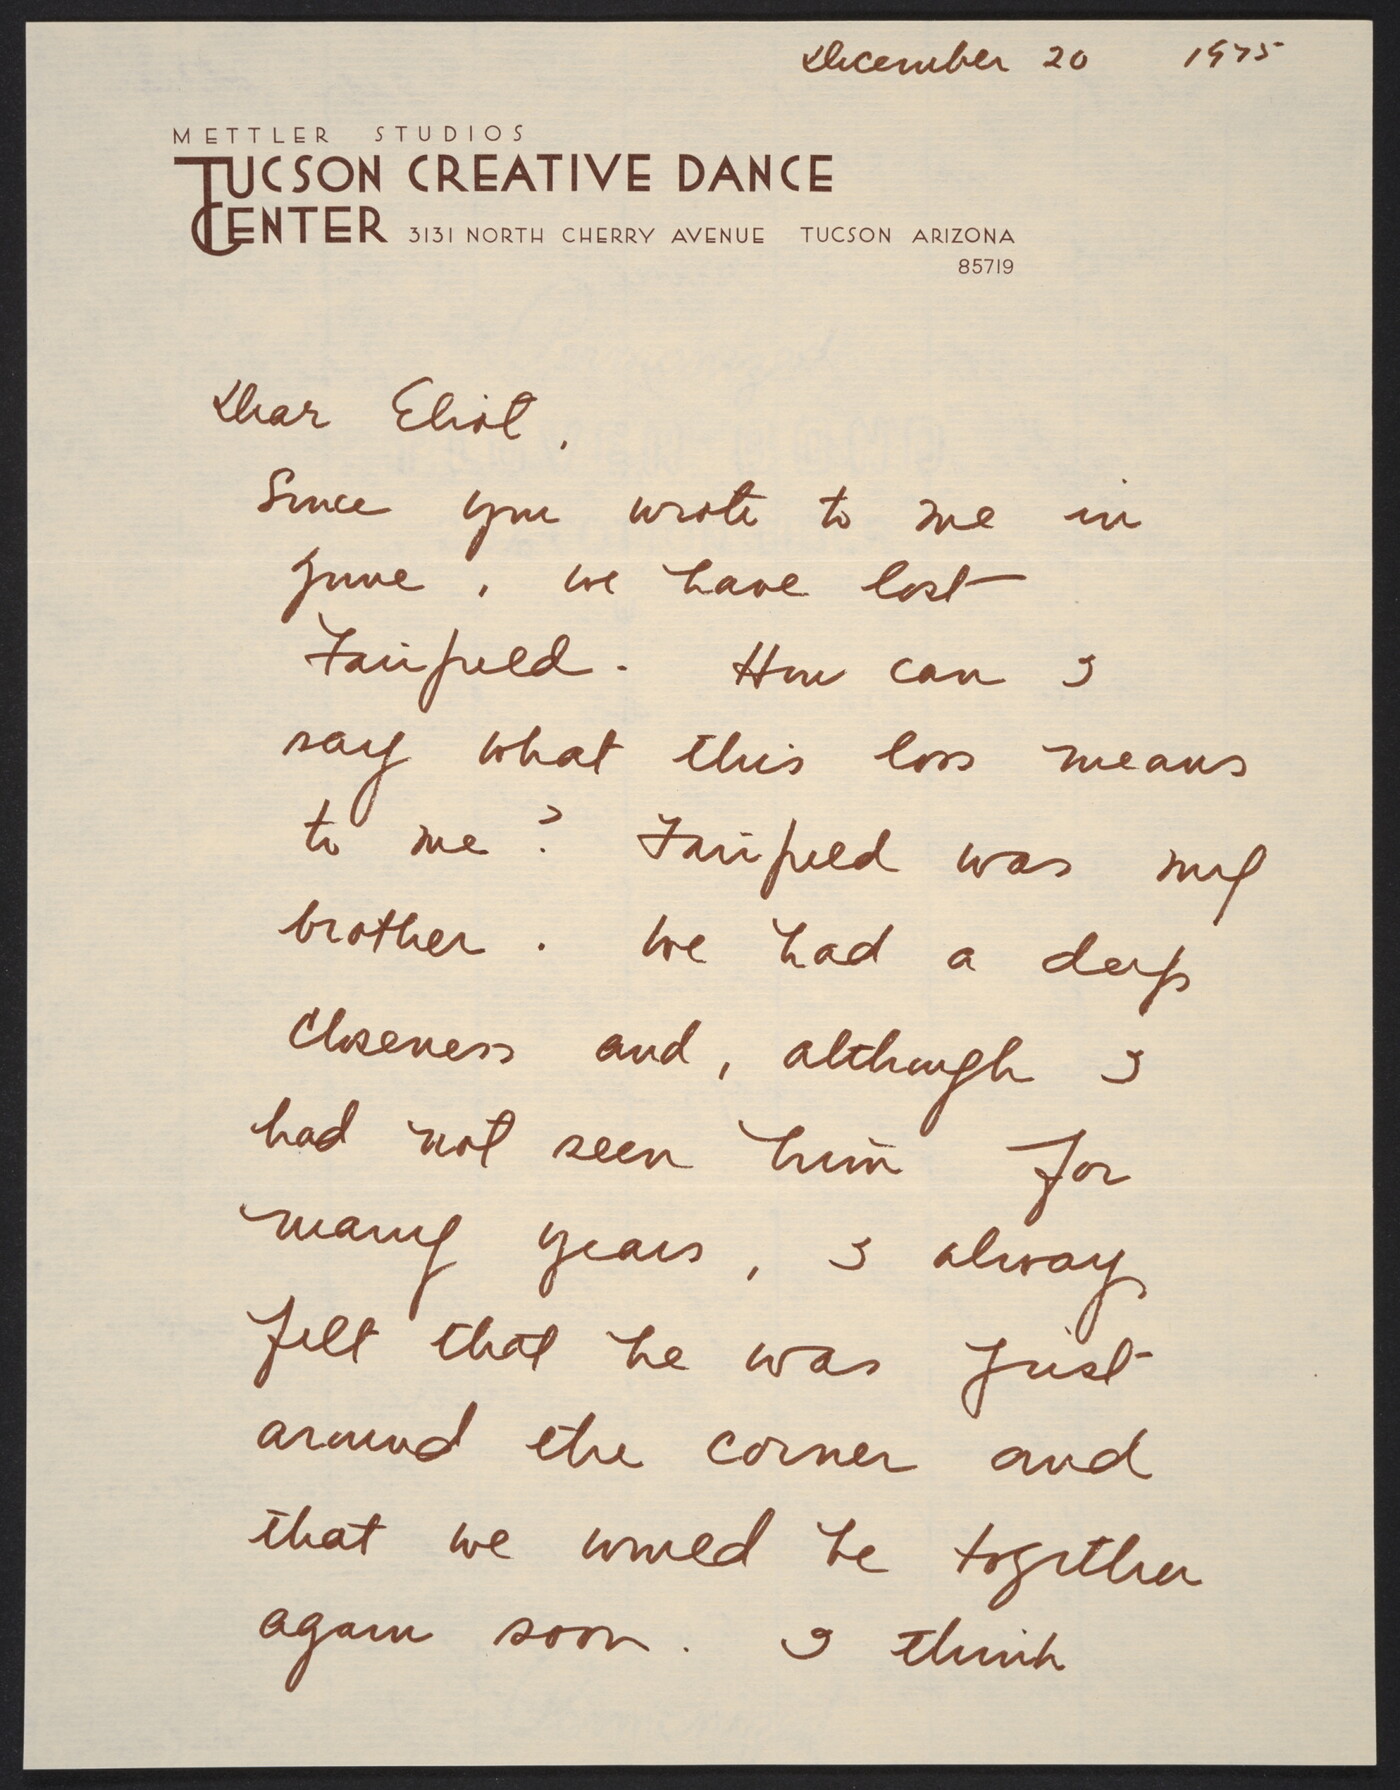 December 20 1975
METTLER STUDIOS
TUCSON CREATIVE DANCE
CENTER 3131 NORTH CHERRY AVENUE TUCSON ARIZONA
85719
Dear Eliot,
Since you wrote to me in
June, we have lost
Fairfield. How can I
say what this loss means
to me? Fairfield was my
brother. We had a deep
closeness and, although I
had not seen him for
many years, I always
felt that he was just
around the corner and
that we would be together
again soon. I think